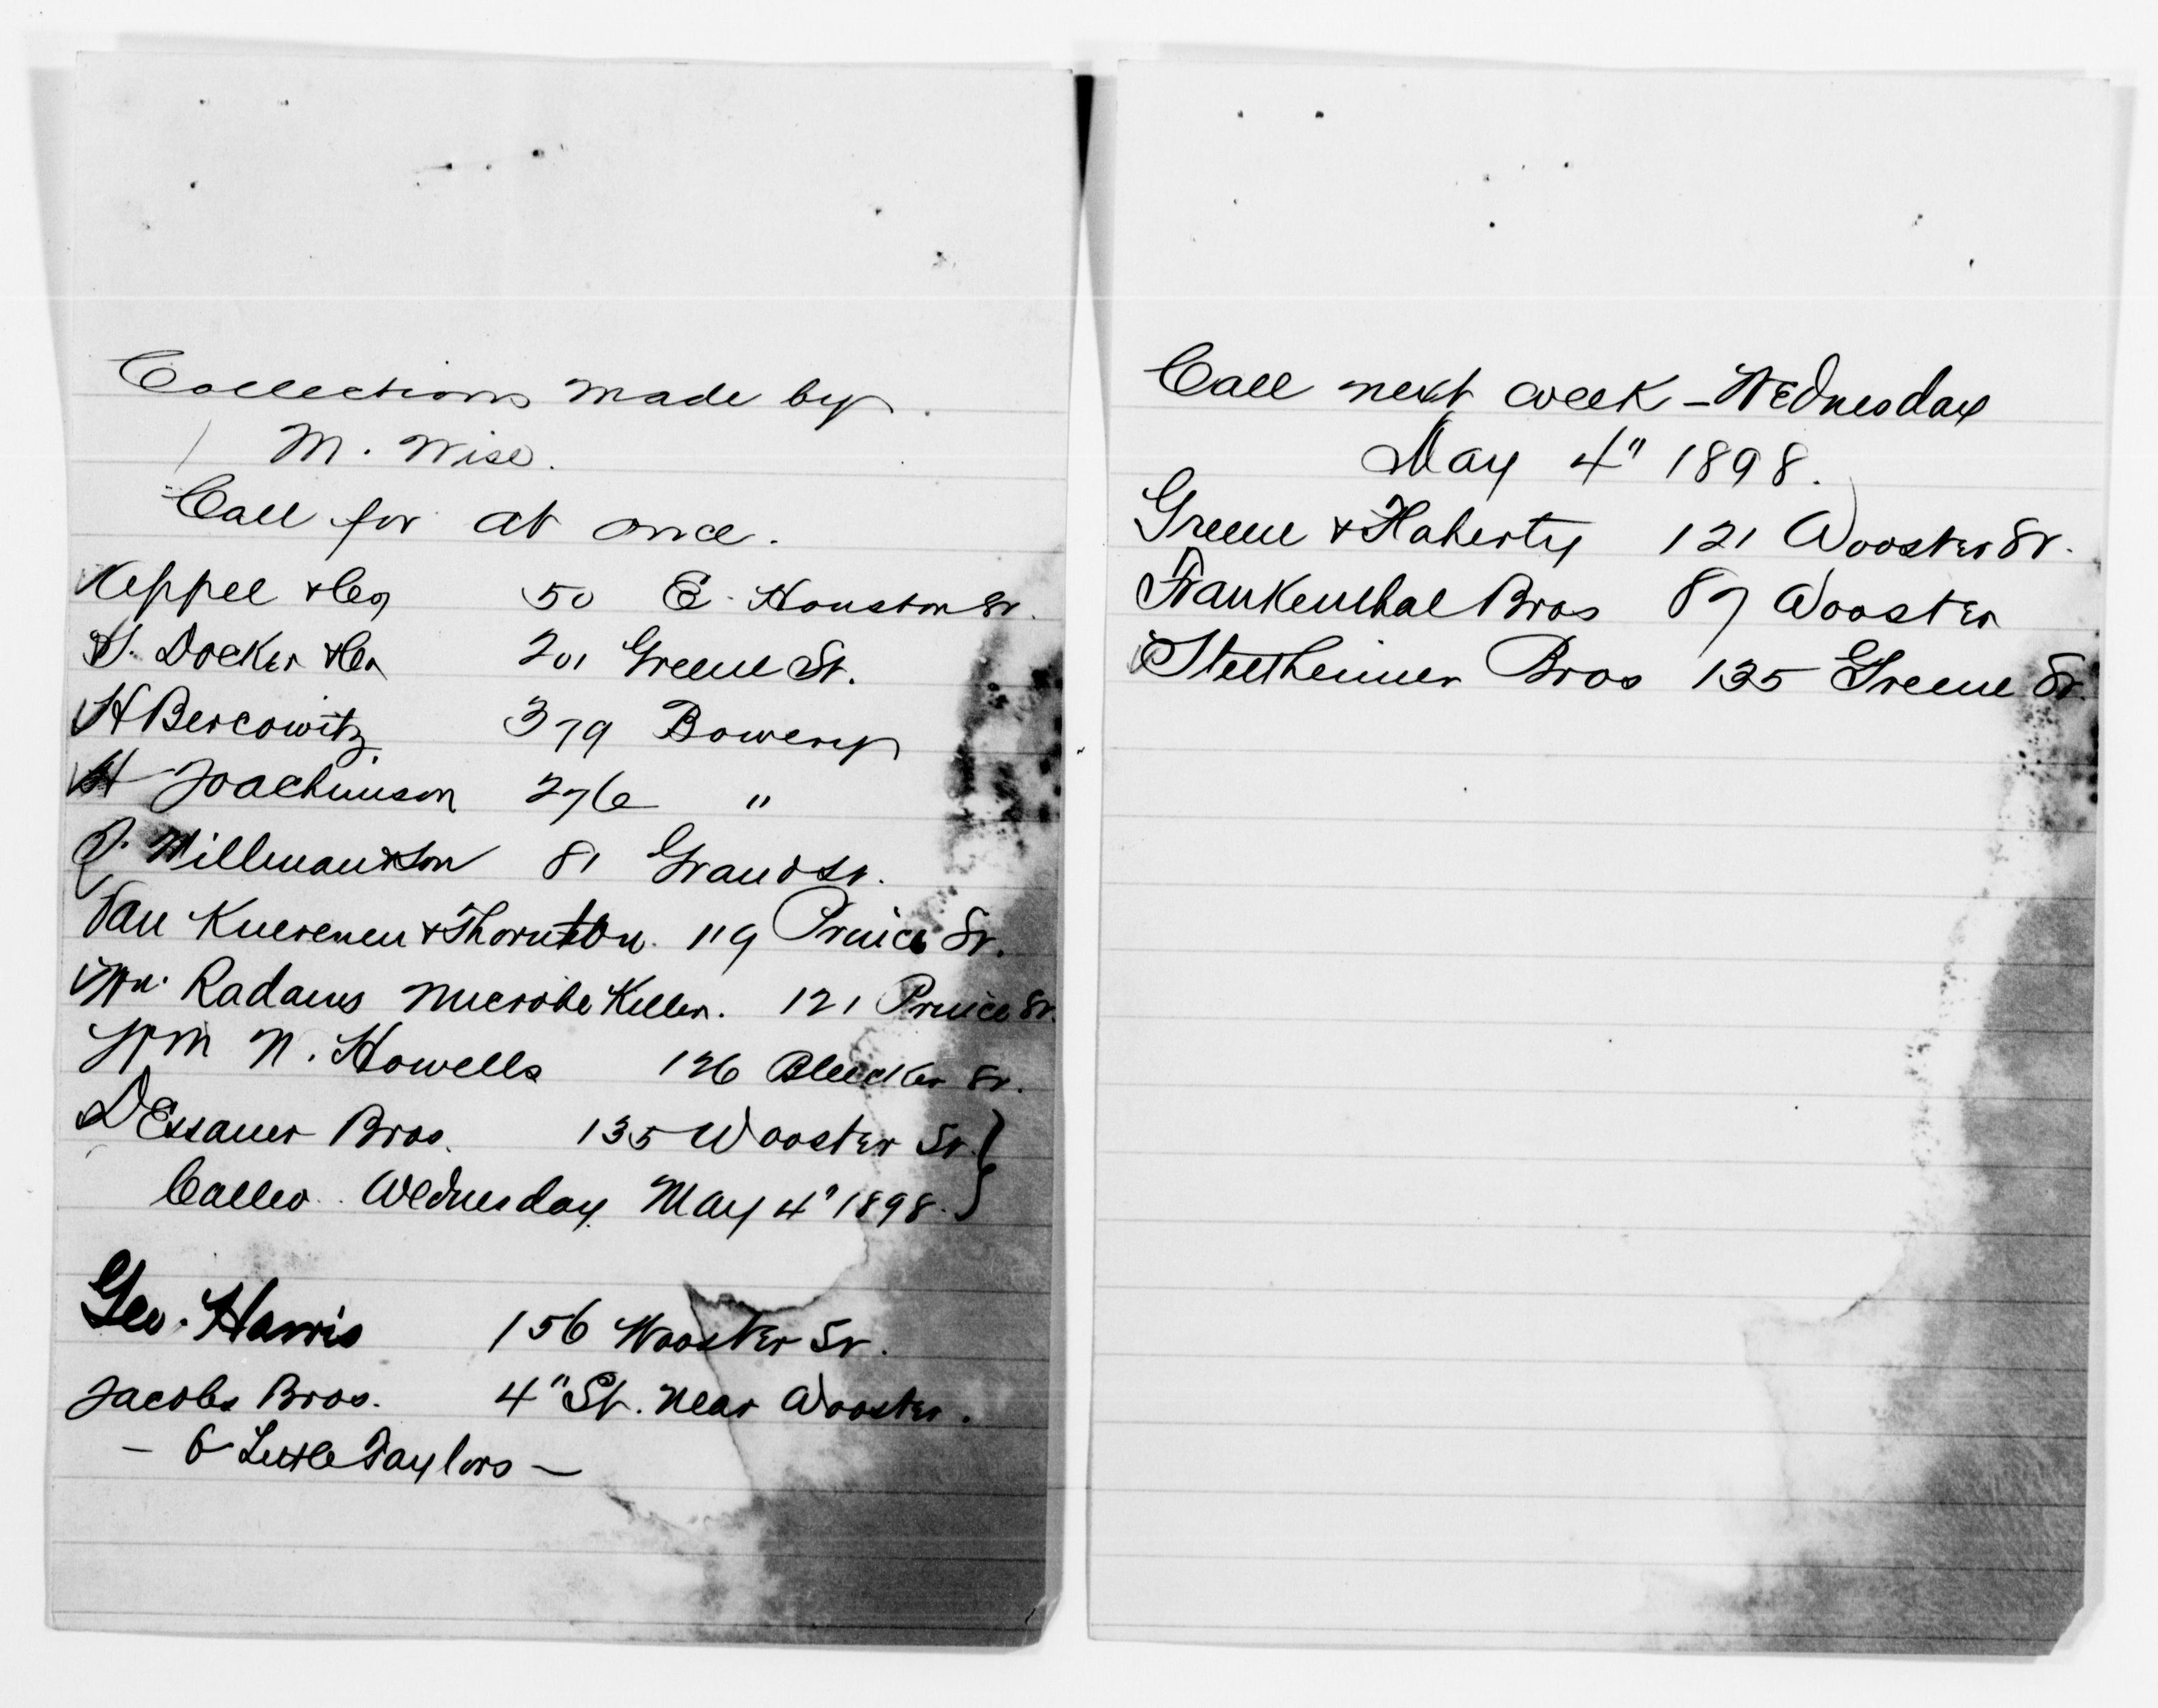 Collections made by
M. Wise.
Call for at once.
Keppel & Co 50 E. Houston St.
S. Docker & Co 201 Greene St.
H Bercowitz 379 Bowery
H Joachimson 276 "
J. Millman & Son 81 Grand St.
Van Kuerenen & Thornton. 119 Prince St.
Wm. Radams Microbe Killer. 121 Prince St.
Wm N. Howells 126 Bleecker St.
DEssauer Bros. 135 Wooster St.
Called Wednesday May 4" 1898.
Geo. Harris 156 Wooster St.
Jacobs Bros. 4" St. near Wooster.
— 6 Little Taylors —
Call next week — WEdnesday
May 4" 1898.
Greene & Flaherty 121 Wooster St.
Frankenthal Bros 87 Wooster
Stettheimer Bros 135 Greene St.